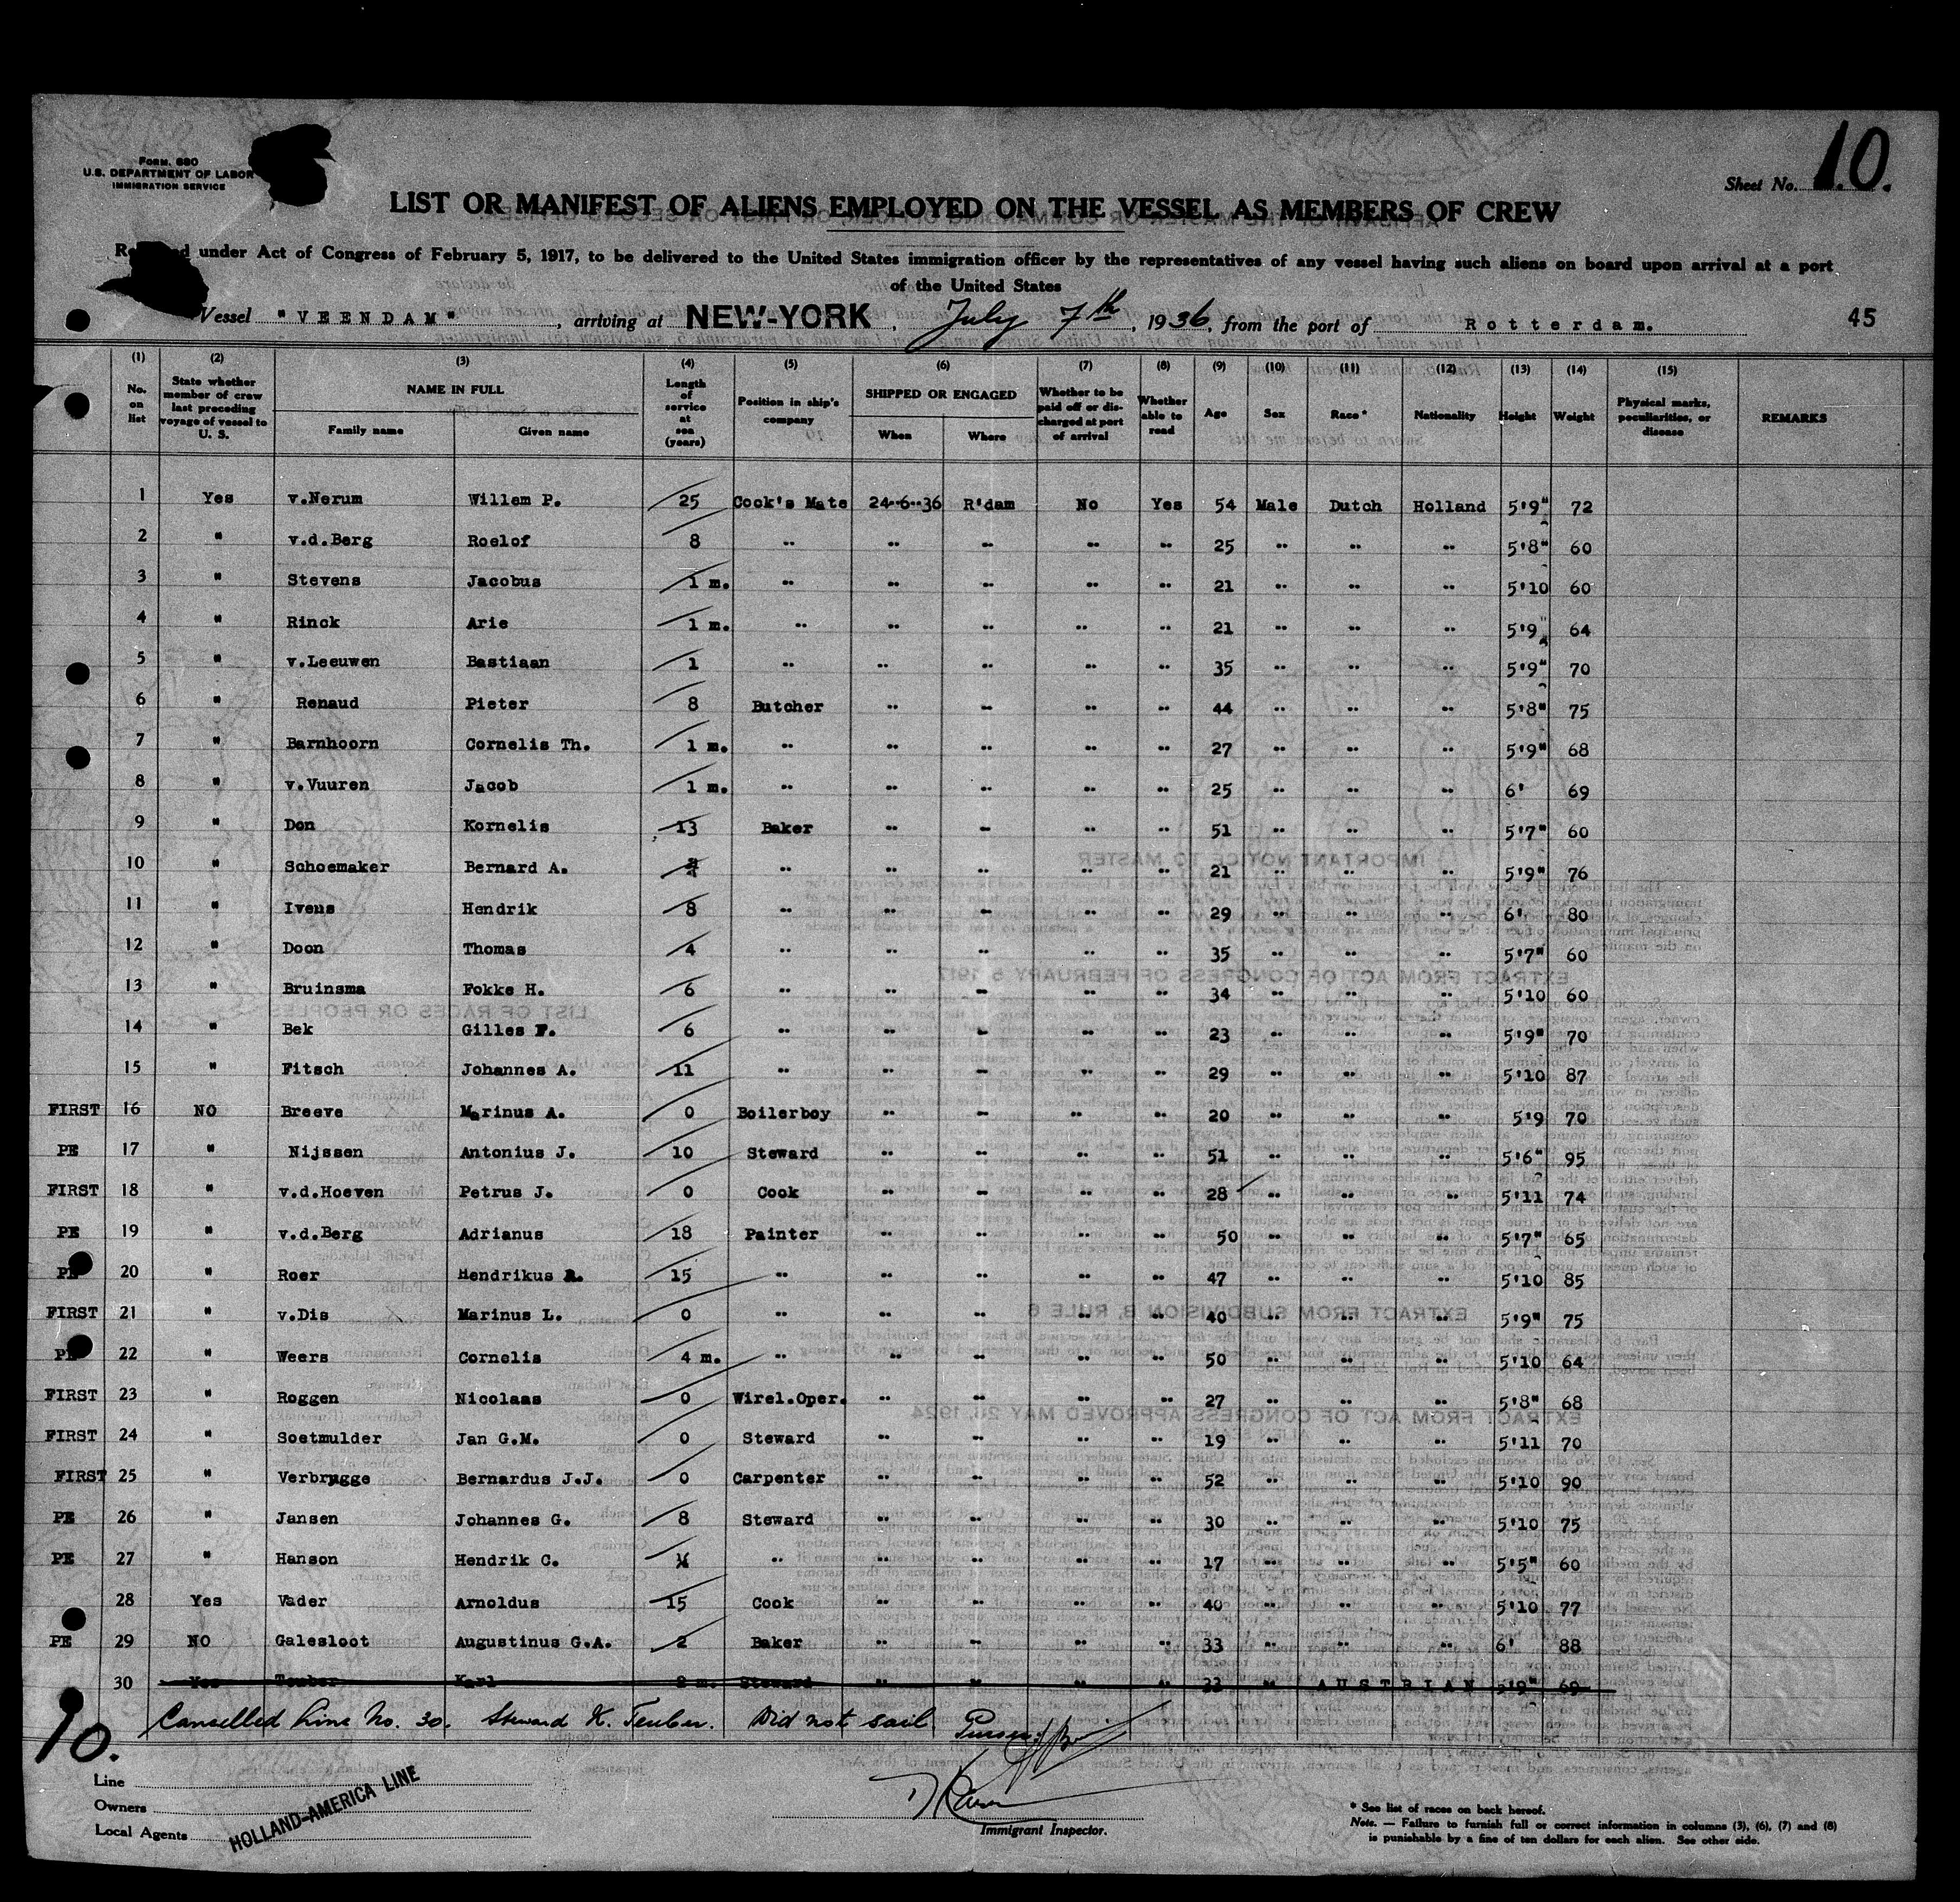 Form. 680
U.S. DEPARTMENT OF LABOR
IMMIGRATION SERVICE
Sheet No. 10.
LIST OR MANIFEST OF ALIENS EMPLOYED ON THE VESSEL AS MEMBERS OF CREW
under Act of Congress of February 5, 1917, to be delivered to the United States immigration officer by the representatives of any vessel having such aliens on board upon arrival at a port
of the United States
Vessel "VEENDAM", arriving at NEW-YORK, July 7th, 1936, from the port of Rotterdam. 45
(1) (2) (3) (4) (5) (6) (7) (8) (9) (10) (11) (12) (13) (14) (15)
No. on list
State whether member of crew last preceding voyage of vessel to U. S.
NAME IN FULL
Family name Given name
Length of service at sea (years)
Position in ship's company
SHIPPED OR ENGAGED
When Where
Whether to be paid off or discharged at port of arrival
Whether able to read
Age Sex Race* Nationality Height Weight
Physical marks, peculiarities, or disease
REMARKS
1 Yes v.Nerum Willem P. 25 Cook's Mate 24-6-36 R'dam No Yes 54 Male Dutch Holland 5'9" 72
2 " v.d.Berg Roelof 8 " " " " " 25 " " " 5'8" 60
3 " Stevens Jacobus 1 m. " " " " " 21 " " " 5'10 60
4 " Rinck Arie 1 m. " " " " " 21 " " " 5'9" 64
5 " v.Leeuwen Bastiaan 1 " " " " " 35 " " " 5'9" 70
6 " Renaud Pieter 8 Butcher " " " " 44 " " " 5'8" 75
7 " Barnhoorn Cornelis Th. 1 m. " " " " " 27 " " " 5'9" 68
8 " v.Vuuren Jacob 1 m. " " " " " 25 " " " 6' 69
9 " Don Kornelis 13 Baker " " " " 51 " " " 5'7" 60
10 " Schoemaker Bernard A. " " " " " 21 " " " 5'9" 76
11 " Ivens Hendrik 8 " " " " " 29 " " " 6' 80
12 " Doon Thomas 4 " " " " " 35 " " " 5'7" 60
13 " Bruinsma Fokke H. 6 " " " " " 34 " " " 5'10 60
14 " Bek Gilles F. 6 " " " " " 23 " " " 5'9" 70
15 " Fitsch Johannes A. 11 " " " " " 29 " " " 5'10 87
FIRST 16 NO Breeve Marinus A. 0 Boilerboy " " " " 20 " " " 5'9 70
PE 17 " Nijssen Antonius J. 10 Steward " " " " 51 " " " 5'6" 95
FIRST 18 " v.d.Hoeven Petrus J. 0 Cook " " " " 28 " " " 5'11 74
PE 19 " v.d.Berg Adrianus 18 Painter " " " " 50 " " " 5'7" 65
PE 20 " Roer Hendrikus R. 15 " " " " " 47 " " " 5'10 85
FIRST 21 " v.Dis Marinus L. 0 " " " " " 40 " " " 5'9" 75
PE 22 " Weers Cornelis 4 m. " " " " " 50 " " " 5'10 64
FIRST 23 " Roggen Nicolaas 0 Wirel.Oper. " " " " 27 " " " 5'8" 68
FIRST 24 " Soetmulder Jan G.M. 0 Steward " " " " 19 " " " 5'11 70
FIRST 25 " Verbrugge Bernardus J.J. 0 Carpenter " " " " 52 " " " 5'10 90
PE 26 " Jansen Johannes G. 8 Steward " " " " 30 " " " 5'10 75
PE 27 " Hanson Hendrik C. " " " " " 17 " " " 5'5" 60
28 Yes Vader Arnoldus 15 Cook " " " " 40 " " " 5'10 77
PE 29 NO Galesloot Augustinus G.A. 2 Baker " " " " 33 " " " 6' 88
30 Yes Teuber Karl 2 m. Steward " " " " 33 " AUSTRIAN 5'9" 69
Cancelled line No. 30. Steward K. Teuber. Did not sail Purser
10.
Line
Owners
Local Agents
HOLLAND-AMERICA LINE
Immigrant Inspector.
* See list of races on back hereof.
Note. — Failure to furnish full or correct information in columns (3), (6), (7) and (8)
is punishable by a fine of ten dollars for each alien. See other side.